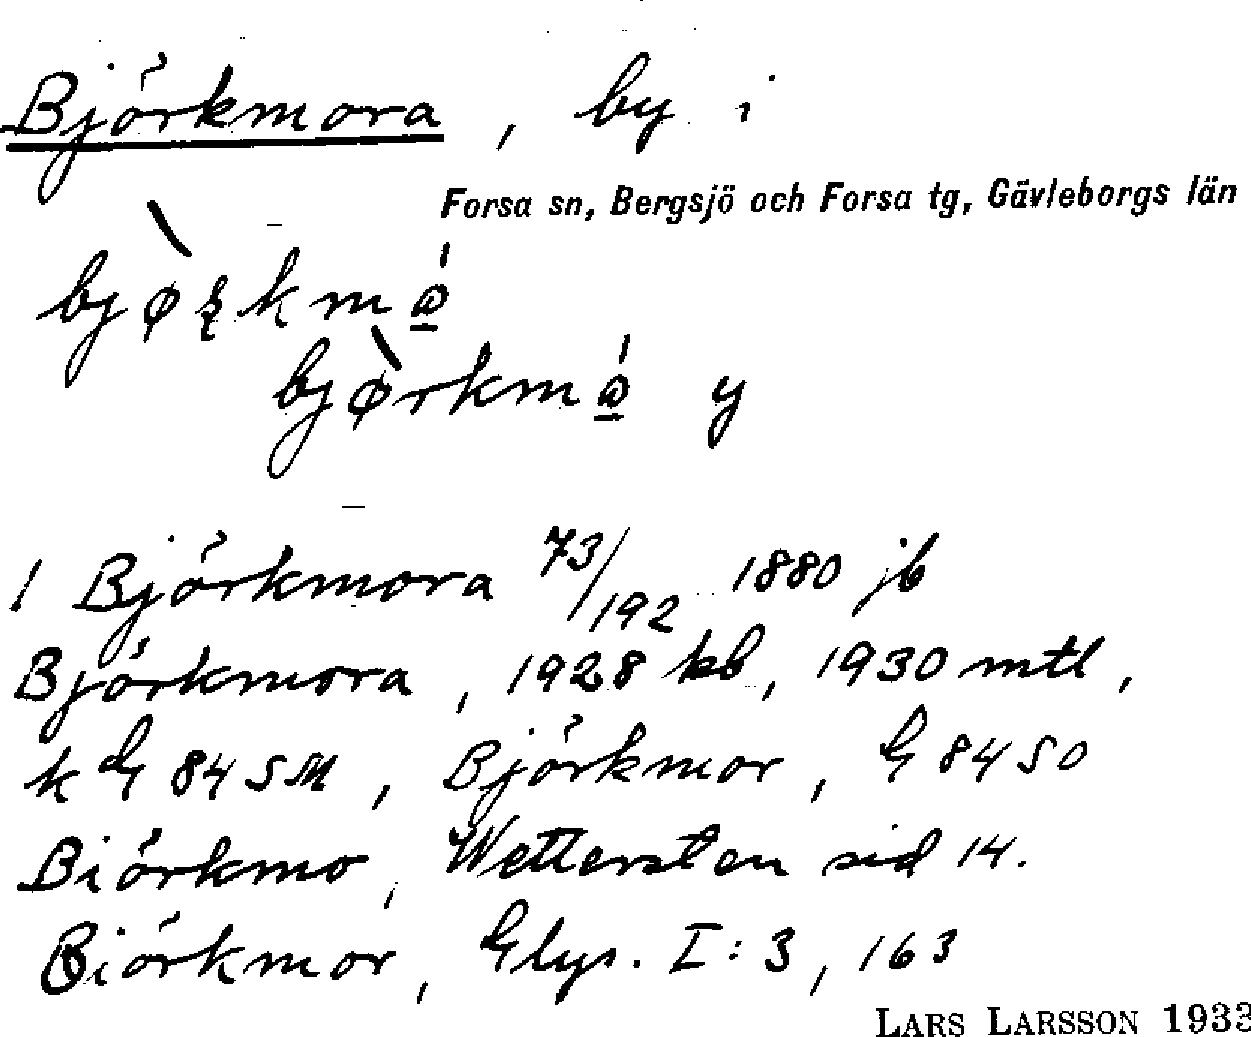 Björkmora, by i
Forsa sn, Bergsjö och Forsa tg, Gävleborgs län
björkmora y
1 Björkmora 73/192 1880 jb
Björkmora, 1928 kb, 1930 mtl,
k G 84 SM, Björkmor, G 84 SO
Biörkmo, Wettersten sid 14.
Biörkmor, Glys. I:3, 163
LARS LARSSON 1933